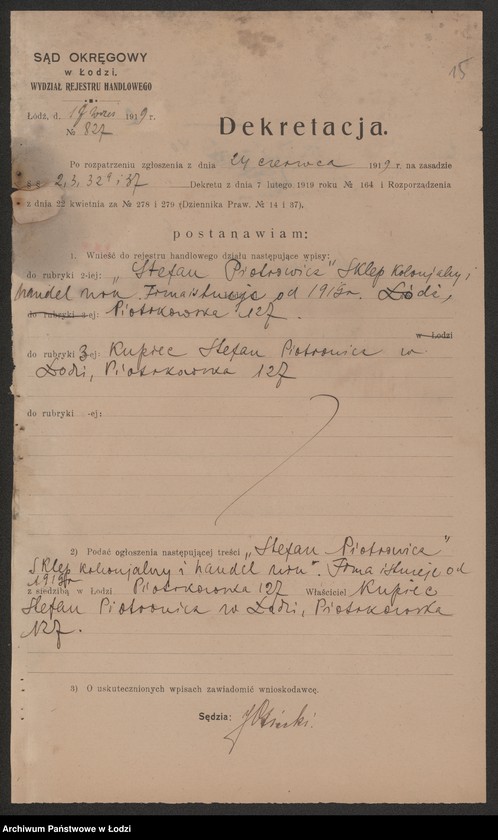 15
SĄD OKRĘGOWY
w Łodzi.
WYDZIAŁ REJESTRU HANDLOWEGO
Łódź, d. 19 wrześ 1919 r.
№ 827
Dekretacja.
Po rozpatrzeniu zgłoszenia z dnia 24 czerwca 1919 r. na zasadzie
2, 3, 32 i 37 Dekretu z dnia 7 lutego 1919 roku № 164 i Rozporządzenia
z dnia 22 kwietnia za № 278 i 279 (Dziennika Praw. № 14 i 37).
postanawiam:
1. Wnieść do rejestru handlowego działu następujące wpisy:
do rubryki 2-iej: „Stefan Piotrowicz" Sklep kolonjalny i
handel win. Firma istnieje od 1919 r. Łódź,
do rubryki -ej: Piotrkowska 127.
w Łodzi
do rubryki 3-ej: Kupiec Stefan Piotrowicz w
Łodzi, Piotrkowska 127
do rubryki -ej:
2) Podać ogłoszenia następującej treści „Stefan Piotrowicz"
Sklep kolonjalny i handel win". Firma istnieje od
1919 r
z siedzibą w Łodzi Piotrkowska 127 Właściciel Kupiec
Stefan Piotrowicz w Łodzi, Piotrkowska
127.
3) O uskutecznionych wpisach zawiadomić wnioskodawcę.
Sędzia:
Archiwum Państwowe w Łodzi